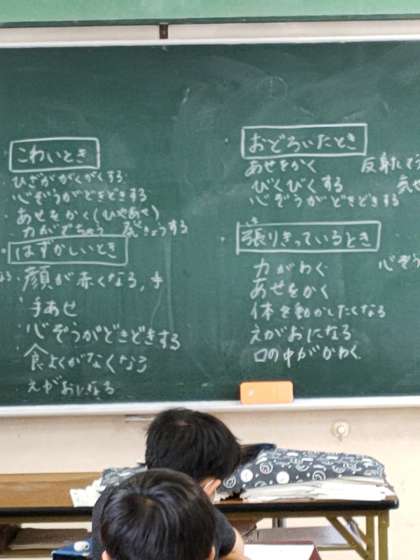 こわいとき
・ひざががくがくする
・心ぞうがどきどきする
・あせをかく(ひやあせ)
・力がでちゃう 気ぜつする
・はずかしいとき
・顔が赤くなる,手
・手あせ
・心ぞうがどきどきする
・食よくがなくなる
・えがおになる
・おどろいたとき
あせをかく 反射
びくびくする
心ぞうがどきどきする
・張りきっているとき
力がわく
あせをかく 心ぞう
体を動かしたくなる
えがおになる
口の中がかわく